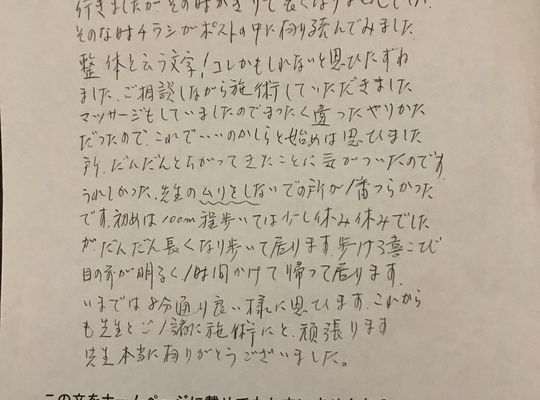 行きましたがその時かぎりで長くはありませんでした
そのな時チラシがポストの中に有り読んでみました
整体と云う文字！コレかもしれないと思ひたずね
ました。ご相談しながら施術していただきました
マッサージもしていましたのでまったく違ったやりかた
だったので、これでいいのかしらと始めは思ひました
所、だんだんとちがってきたことに気がついたのです。
うれしかった。先生のムリをしないでの所が1番つらかった
です。初めは100m程歩いては少し休み休みでした
が、だんだん長くなり歩いて居ります。歩ける喜こび
目の前が明るく1時間かけて帰って居ります。
いまでは8分通り良い様に思ひます。これから
も先生とご1諸に施術にと、頑張ります
先生本当に有りがとうございました。